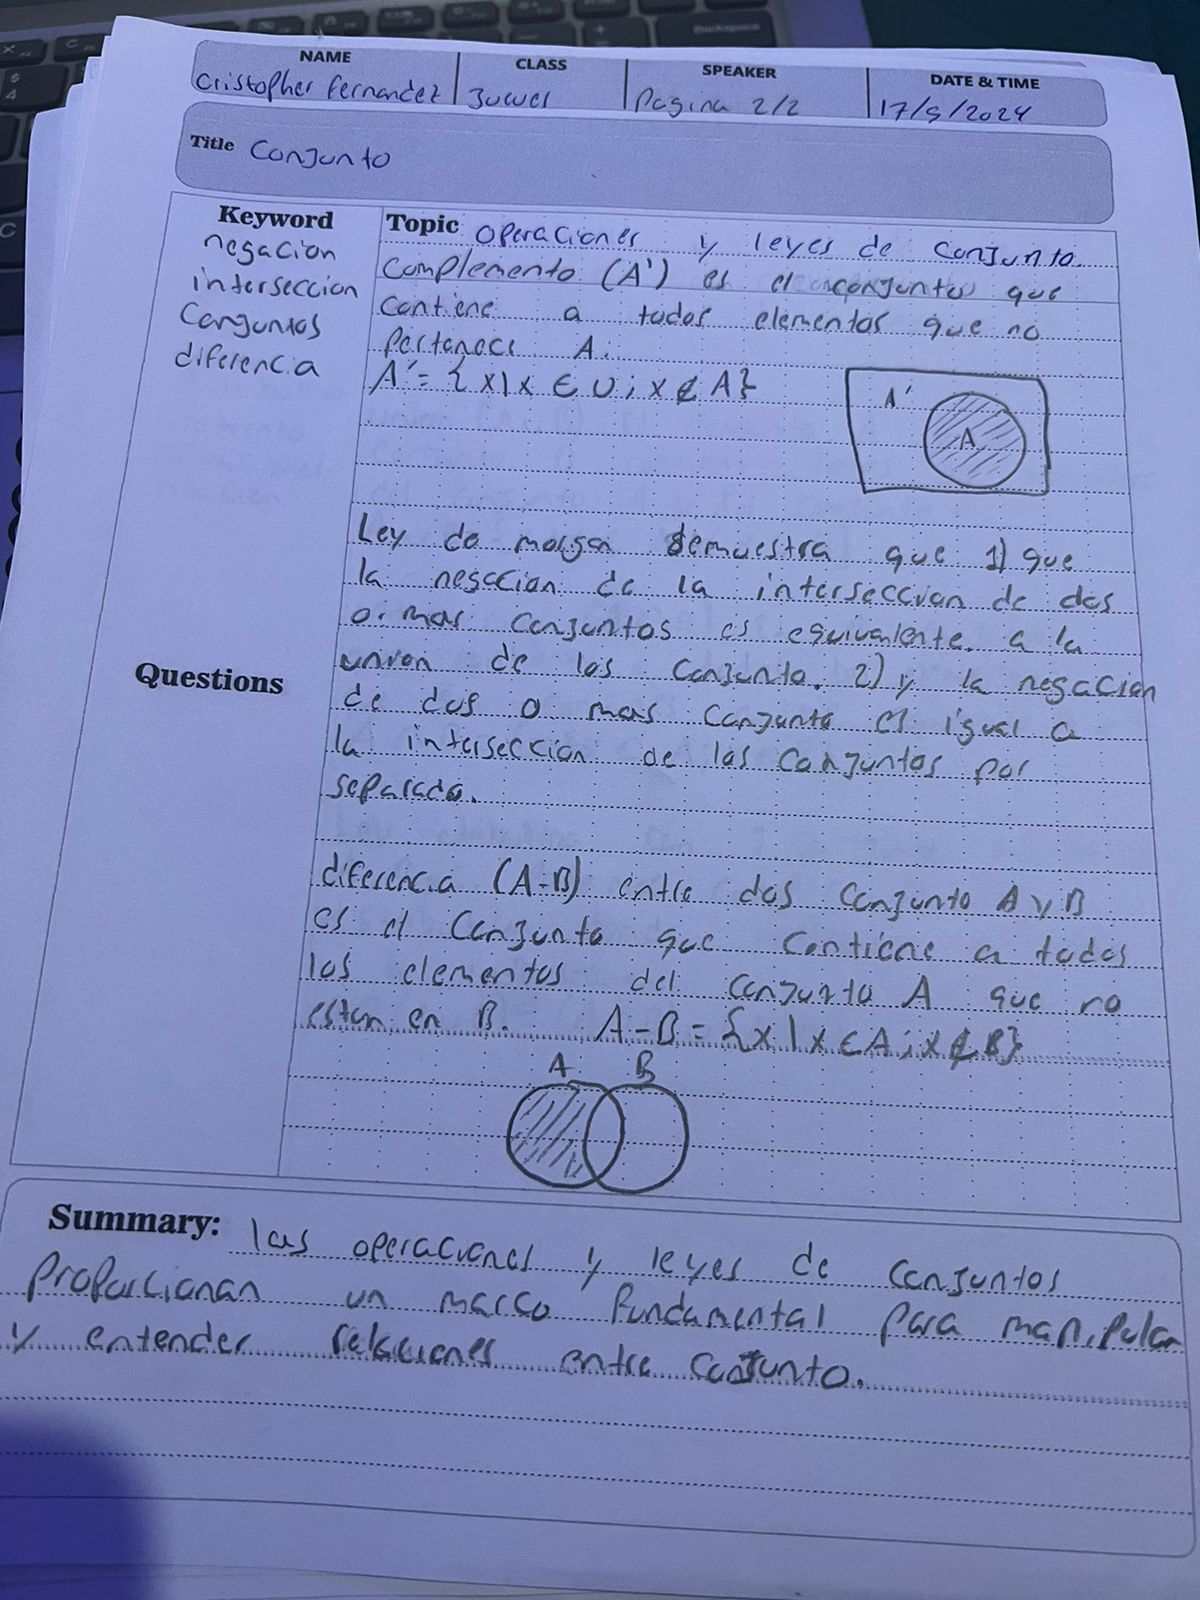 NAME CLASS SPEAKER DATE & TIME
Cristopher Fernandez Juevel Pagina 2/2 17/9/2024
Title Conjunto
Keyword
negacion
interseccion
Conjuntos
diferencia
Topic operaciones y leyes de conjunto.
Complemento (A') es el conjuntos que
contiene a todos elementos que no
Pertenece A.
A' = {x|x ∈ U; x ∉ A}
A'
A
Ley de morgan demuestra que 1) que
la negacion de la interseccion de dos
o mas conjuntos es equivalente a la
union de los conjunto. 2) y la negacion
de dos o mas conjunto es igual a
la interseccion de los conjuntos por
separado.
Questions
diferencia (A-B) entre dos conjunto A y B
es el conjunto que contiene a todos
los elementos del conjunto A que no
estan en B. A-B = {x|x ∈ A; x ∉ B}
A B
Summary: las operaciones y leyes de conjuntos
Proporcionan un marco fundamental para manipular
y entender relaciones entre conjunto.